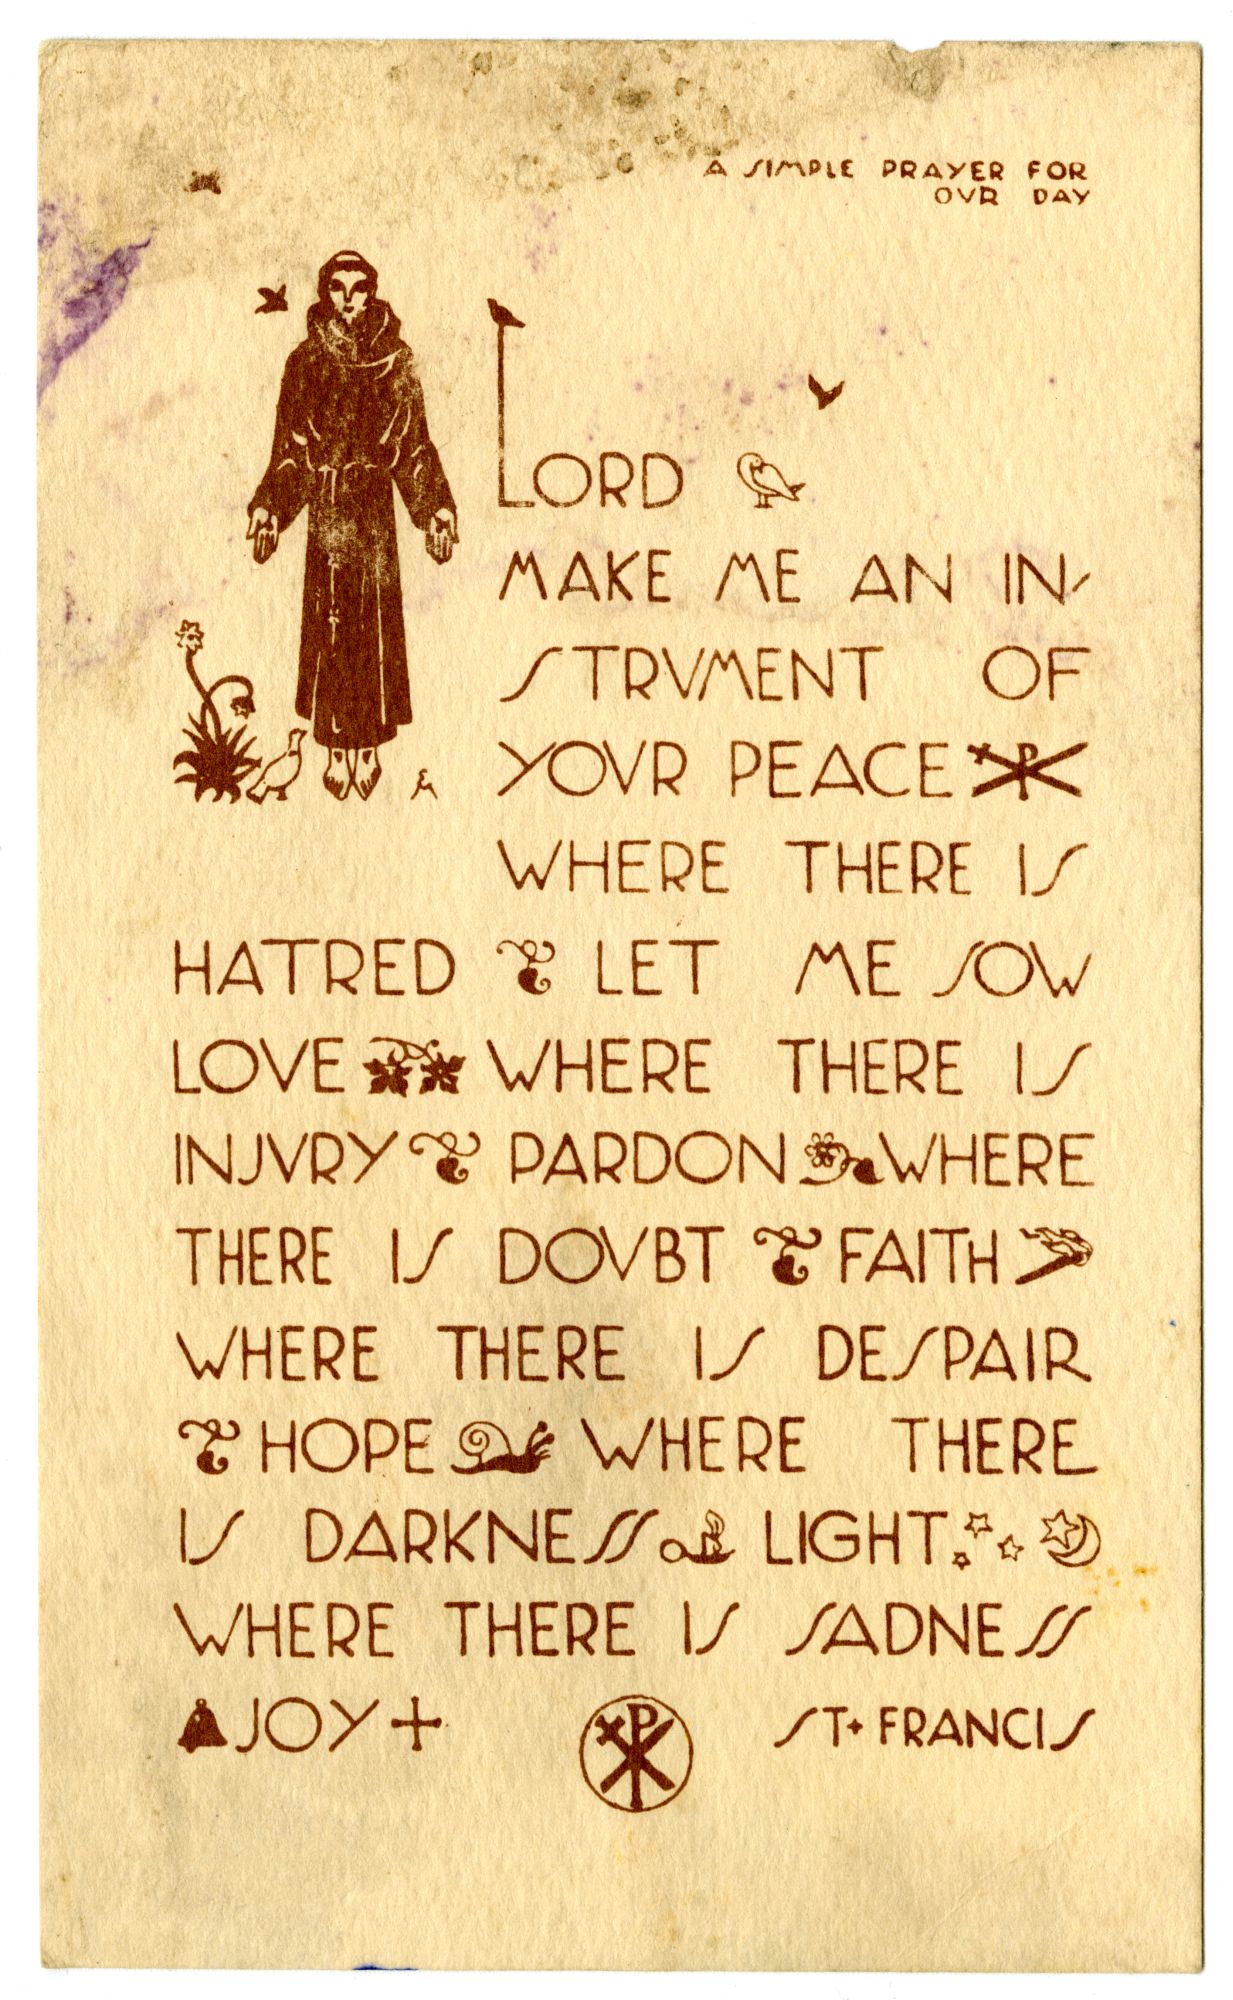 A SIMPLE PRAYER FOR
OVR DAY
LORD
MAKE ME AN IN-
STRVMENT OF
YOVR PEACE
WHERE THERE IS
HATRED LET ME SOW
LOVE WHERE THERE IS
INJVRY PARDON WHERE
THERE IS DOVBT FAITH
WHERE THERE IS DESPAIR
HOPE WHERE THERE
IS DARKNESS LIGHT
WHERE THERE IS SADNESS
JOY ST. FRANCIS